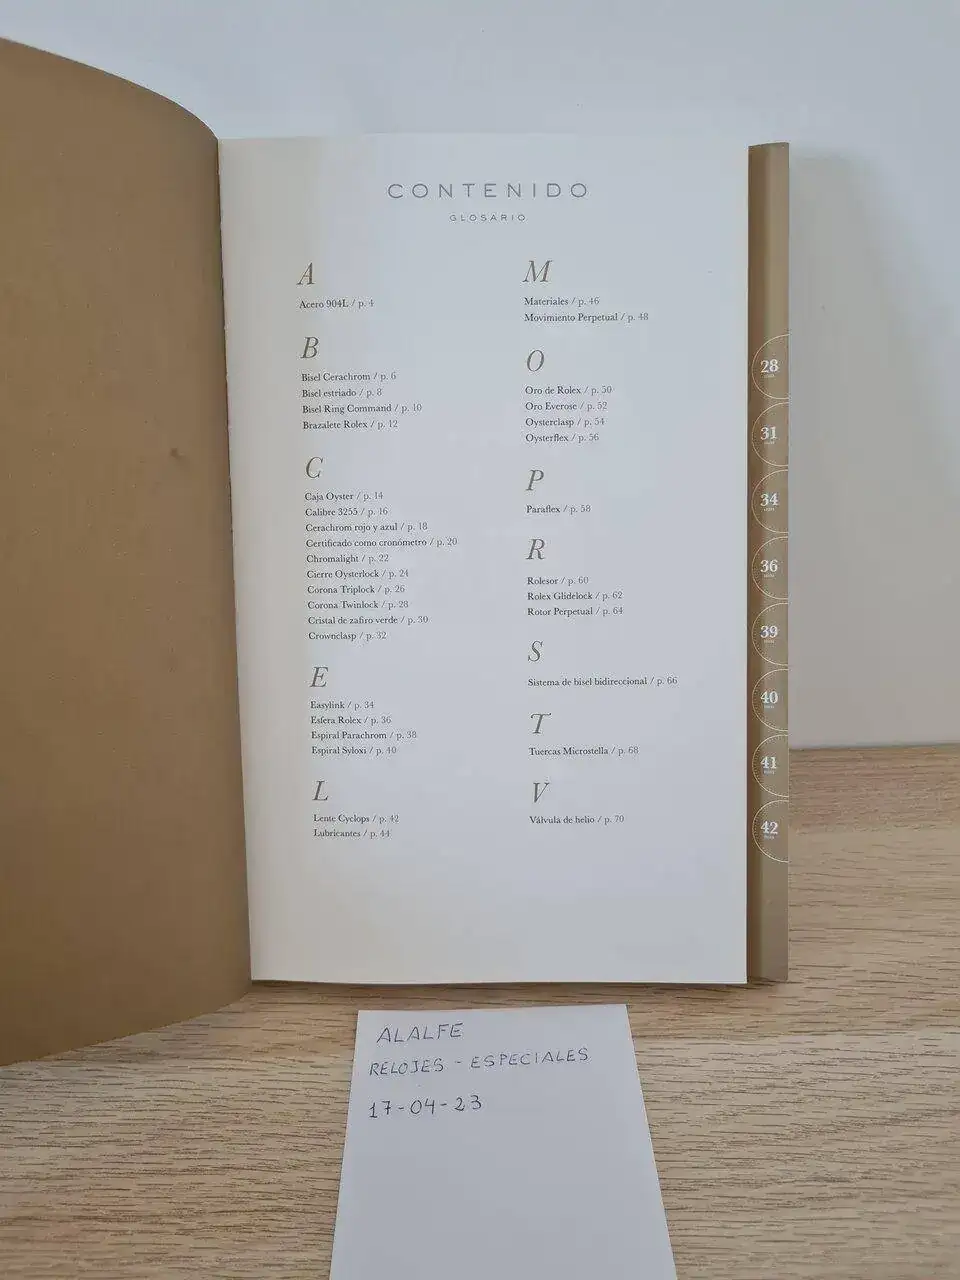 CONTENIDO
GLOSARIO
A
Acero 904L / p. 4
B
Bisel Cerachrom / p. 6
Bisel estriado / p. 8
Bisel Ring Command / p. 10
Brazalete Rolex / p. 12
C
Caja Oyster / p. 14
Calibre 3255 / p. 16
Cerachrom rojo y azul / p. 18
Certificado como cronómetro / p. 20
Chromalight / p. 22
Cierre Oysterlock / p. 24
Corona Triplock / p. 26
Corona Twinlock / p. 28
Cristal de zafiro verde / p. 30
Crownclasp / p. 32
E
Easylink / p. 34
Esfera Rolex / p. 36
Espiral Parachrom / p. 38
Espiral Syloxi / p. 40
L
Lente Cyclops / p. 42
Lubricantes / p. 44
M
Materiales / p. 46
Movimiento Perpetual / p. 48
O
Oro de Rolex / p. 50
Oro Everose / p. 52
Oysterclasp / p. 54
Oysterflex / p. 56
P
Paraflex / p. 58
R
Rolesor / p. 60
Rolex Glidelock / p. 62
Rotor Perpetual / p. 64
S
Sistema de bisel bidireccional / p. 66
T
Tuercas Microstella / p. 68
V
Válvula de helio / p. 70
28
31
34
36
39
40
41
42
ALALFE
RELOJES - ESPECIALES
17-04-23